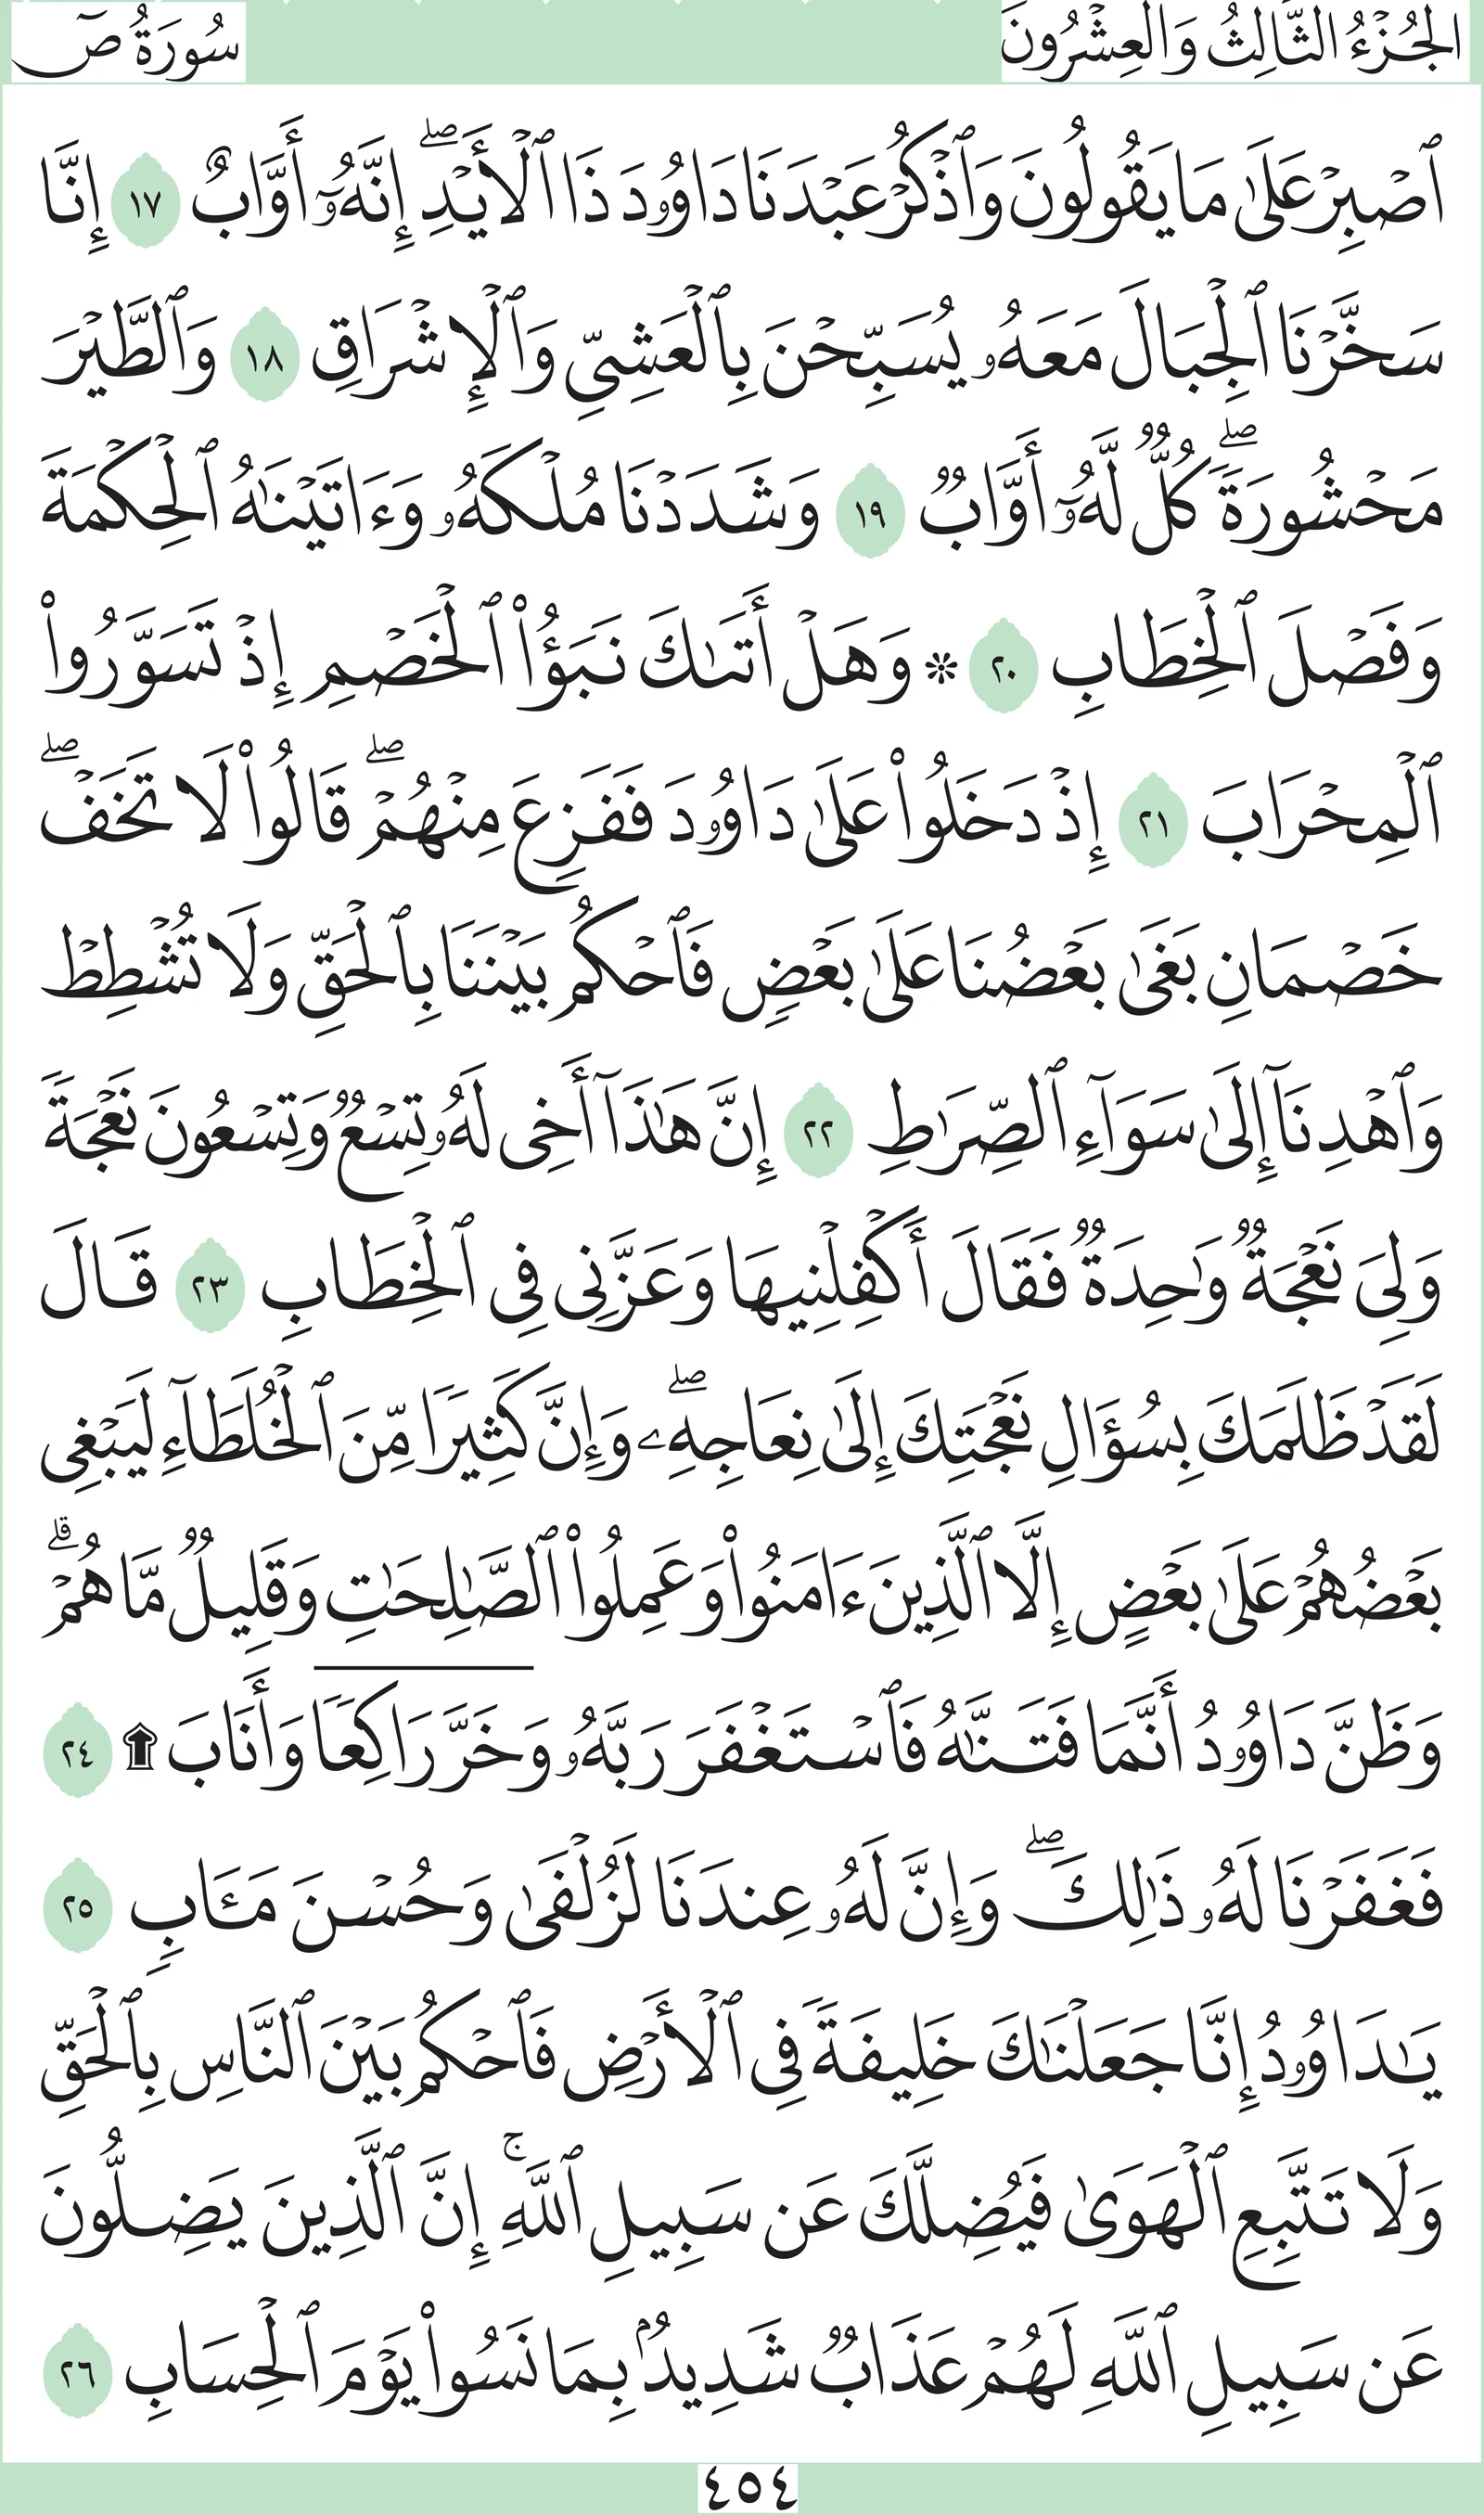 الجُزْءُ الثَّالِثُ وَالعِشْرُونَ
سُورَةُ صٓ
ٱصۡبِرۡ عَلَىٰ مَا يَقُولُونَ وَٱذۡكُرۡ عَبۡدَنَا دَاوُۥدَ ذَا ٱلۡأَيۡدِۖ إِنَّهُۥٓ أَوَّابٌ ١٧ إِنَّا
سَخَّرۡنَا ٱلۡجِبَالَ مَعَهُۥ يُسَبِّحۡنَ بِٱلۡعَشِيِّ وَٱلۡإِشۡرَاقِ ١٨ وَٱلطَّيۡرَ
مَحۡشُورَةٗۖ كُلّٞ لَّهُۥٓ أَوَّابٞ ١٩ وَشَدَدۡنَا مُلۡكَهُۥ وَءَاتَيۡنَٰهُ ٱلۡحِكۡمَةَ
وَفَصۡلَ ٱلۡخِطَابِ ٢٠ ۞ وَهَلۡ أَتَىٰكَ نَبَؤُاْ ٱلۡخَصۡمِ إِذۡ تَسَوَّرُواْ
ٱلۡمِحۡرَابَ ٢١ إِذۡ دَخَلُواْ عَلَىٰ دَاوُۥدَ فَفَزِعَ مِنۡهُمۡۖ قَالُواْ لَا تَخَفۡۖ
خَصۡمَانِ بَغَىٰ بَعۡضُنَا عَلَىٰ بَعۡضٖ فَٱحۡكُم بَيۡنَنَا بِٱلۡحَقِّ وَلَا تُشۡطِطۡ
وَٱهۡدِنَآ إِلَىٰ سَوَآءِ ٱلصِّرَٰطِ ٢٢ إِنَّ هَٰذَآ أَخِي لَهُۥ تِسۡعٞ وَتِسۡعُونَ نَعۡجَةٗ
وَلِيَ نَعۡجَةٞ وَٰحِدَةٞ فَقَالَ أَكۡفِلۡنِيهَا وَعَزَّنِي فِي ٱلۡخِطَابِ ٢٣ قَالَ
لَقَدۡ ظَلَمَكَ بِسُؤَالِ نَعۡجَتِكَ إِلَىٰ نِعَاجِهِۦۖ وَإِنَّ كَثِيرٗا مِّنَ ٱلۡخُلَطَآءِ لَيَبۡغِي
بَعۡضُهُمۡ عَلَىٰ بَعۡضٍ إِلَّا ٱلَّذِينَ ءَامَنُواْ وَعَمِلُواْ ٱلصَّٰلِحَٰتِ وَقَلِيلٞ مَّا هُمۡۗ
وَظَنَّ دَاوُۥدُ أَنَّمَا فَتَنَّٰهُ فَٱسۡتَغۡفَرَ رَبَّهُۥ وَخَرَّۤ رَاكِعٗاۤ وَأَنَابَ ۩ ٢٤
فَغَفَرۡنَا لَهُۥ ذَٰلِكَۖ وَإِنَّ لَهُۥ عِندَنَا لَزُلۡفَىٰ وَحُسۡنَ مَـَٔابٖ ٢٥
يَٰدَاوُۥدُ إِنَّا جَعَلۡنَٰكَ خَلِيفَةٗ فِي ٱلۡأَرۡضِ فَٱحۡكُم بَيۡنَ ٱلنَّاسِ بِٱلۡحَقِّ
وَلَا تَتَّبِعِ ٱلۡهَوَىٰ فَيُضِلَّكَ عَن سَبِيلِ ٱللَّهِۚ إِنَّ ٱلَّذِينَ يَضِلُّونَ
عَن سَبِيلِ ٱللَّهِ لَهُمۡ عَذَابٞ شَدِيدُۢ بِمَا نَسُواْ يَوۡمَ ٱلۡحِسَابِ ٢٦
٤٥٤